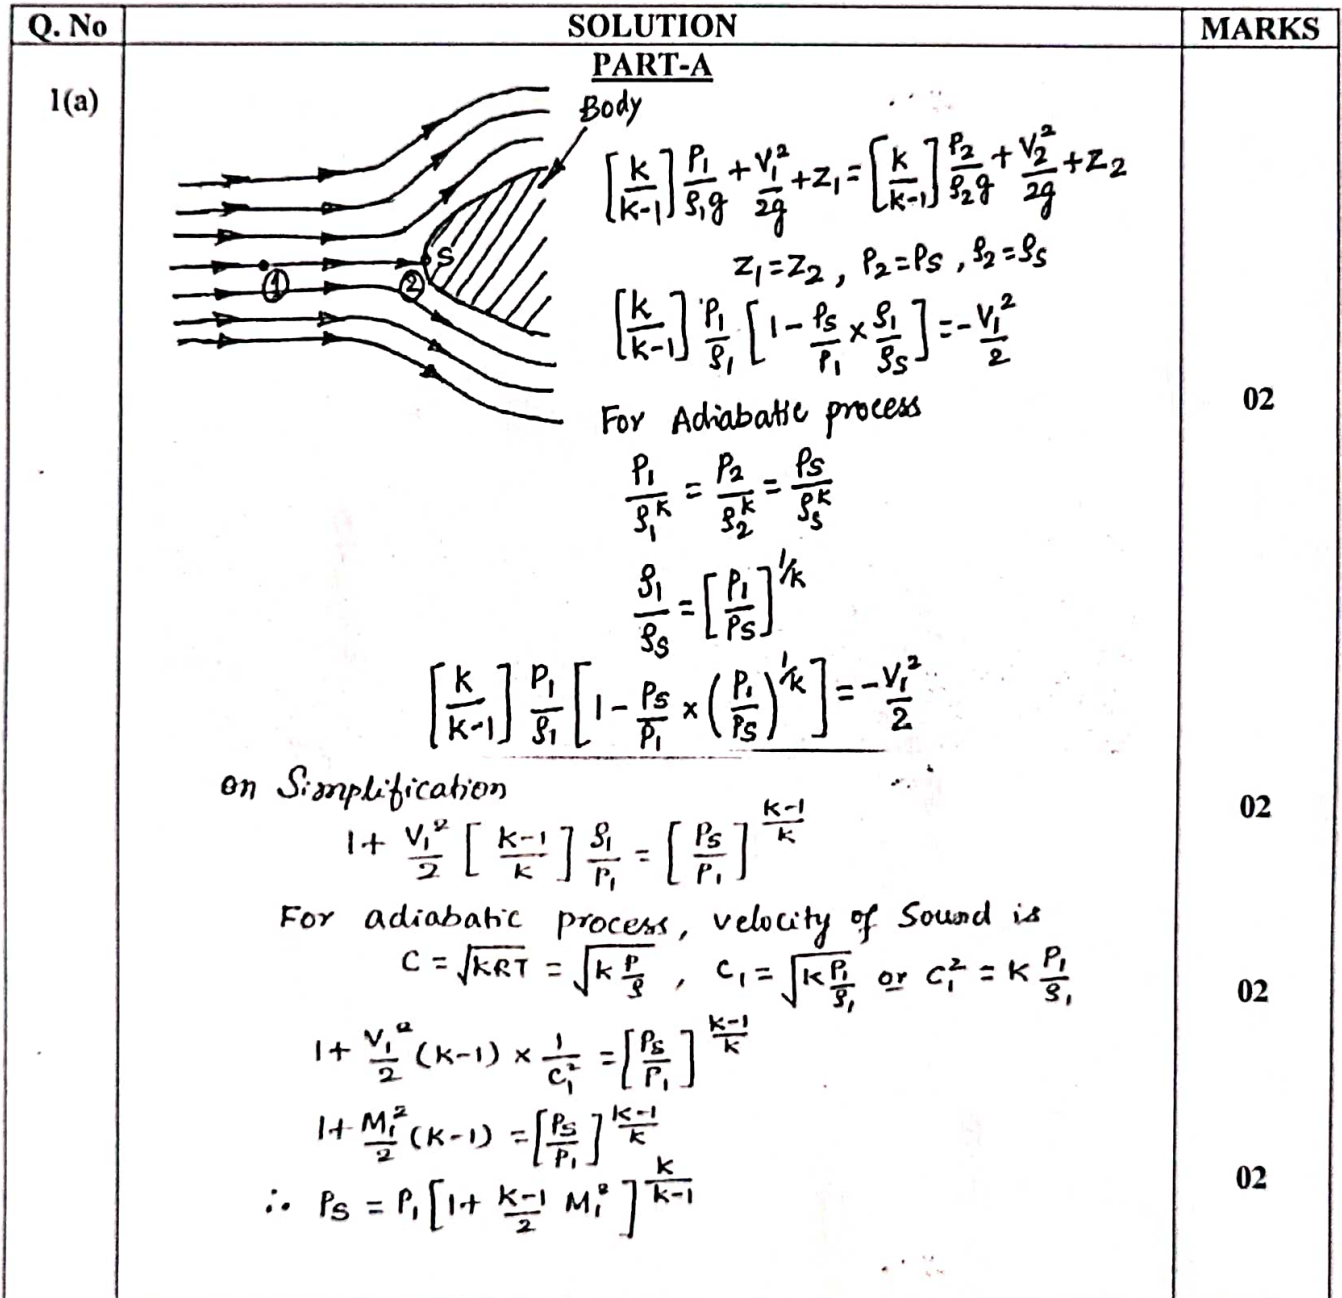 Q. No SOLUTION MARKS
PART-A
1(a)
Body
[k/k-1] P₁/ρ₁g + V₁²/2g + Z₁ = [k/k-1] P₂/ρ₂g + V₂²/2g + Z₂
S
① ②
Z₁=Z₂, P₂=Ps, ρ₂=ρs
[k/k-1] P₁/ρ₁ [1 - Ps/P₁ × ρ₁/ρs] = -V₁²/2
02
For Adiabatic process
P₁/ρ₁ᵏ = P₂/ρ₂ᵏ = Ps/ρsᵏ
ρ₁/ρs = [P₁/Ps]^1/k
[k/k-1] P₁/ρ₁ [1 - Ps/P₁ × (P₁/Ps)^1/k] = -V₁²/2
on Simplification
02
1+ V₁²/2 [k-1/k] ρ₁/P₁ = [Ps/P₁]^k-1/k
For adiabatic process, velocity of Sound is
C = √kRT = √k P/ρ , C₁ = √k P₁/ρ₁ or C₁² = k P₁/ρ₁
02
1+ V₁²/2 (k-1) × 1/C₁² = [Ps/P₁]^k-1/k
1+ M₁²/2 (k-1) = [Ps/P₁]^k-1/k
∴ Ps = P₁ [1+ k-1/2 M₁²]^k/k-1
02